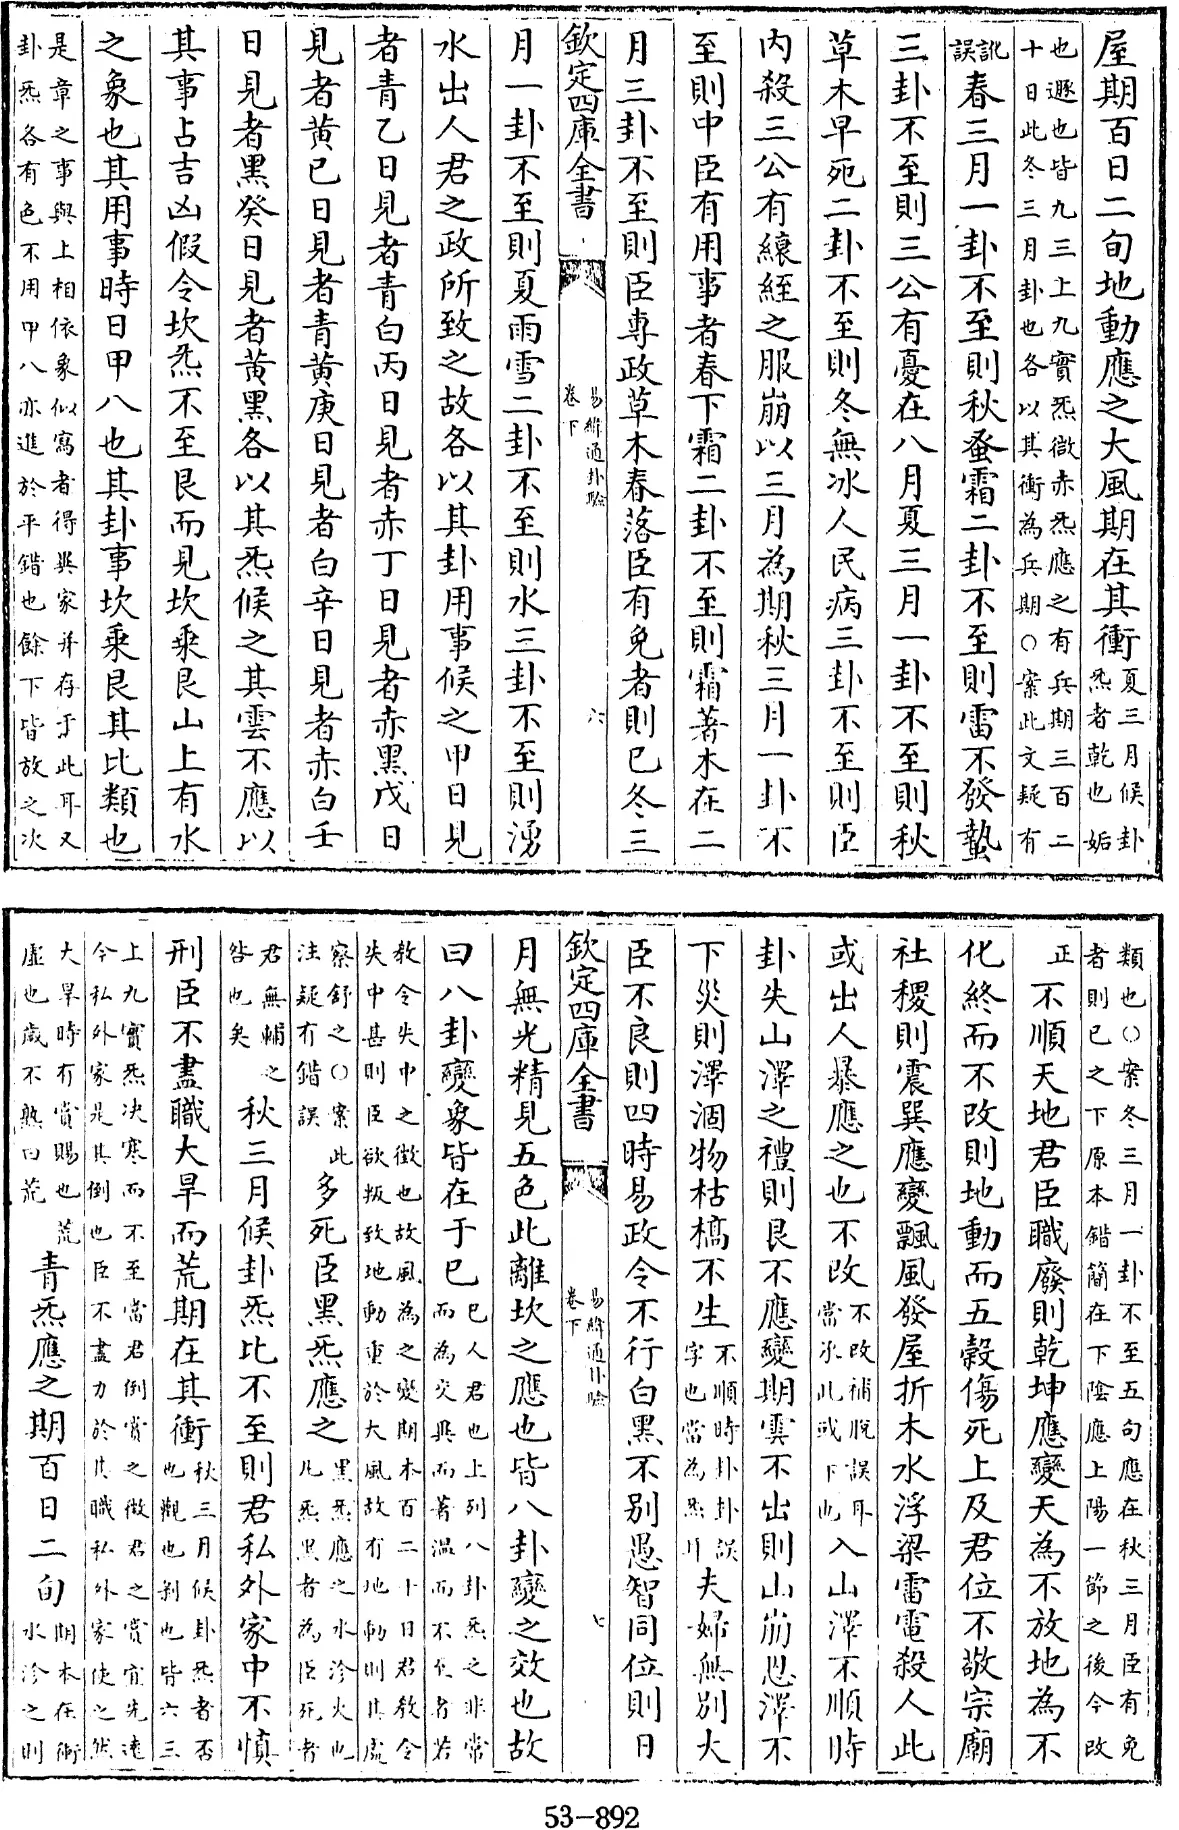 屋期百日二旬地動應之大風期在其衝夏三月候卦
炁者乾也姤
也遯也皆九三上九實炁微赤炁應之有兵期三百二
十日此冬三月卦也各以其衝為兵期○案此文疑有
訛
誤春三月一卦不至則秋蚤霜二卦不至則雷不發蟄
三卦不至則三公有憂在八月夏三月一卦不至則秋
草木早死二卦不至則冬無冰人民病三卦不至則臣
内殺三公有縗絰之服崩以三月為期秋三月一卦不
至則中臣有用事者春下霜二卦不至則霜著木在二
月三卦不至則臣專政草木春落臣有免者則已冬三
欽定四庫全書
易緯通卦驗
卷下
六
月一卦不至則夏雨雪二卦不至則水三卦不至則湧
水出人君之政所致之故各以其卦用事候之甲日見
者青乙日見者青白丙日見者赤丁日見者赤黑戊日
見者黄已日見者青黄庚日見者白辛日見者赤白壬
日見者黑癸日見者黄黑各以其炁候之其雲不應以
其事占吉凶假令坎炁不至艮而見坎乘艮山上有水
之象也其用事時日甲八也其卦事坎乘艮其比類也
是章之事與上相依象似寫者得異家并存于此耳又
卦炁各有色不用甲八亦進於平錯也餘下皆放之次
類也○案冬三月一卦不至五句應在秋三月臣有免
者則已之下原本錯簡在下陰應上陽一節之後今改
正
不順天地君臣職廢則乾坤應變天為不放地為不
化終而不改則地動而五穀傷死上及君位不敬宗廟
社稷則震巽應變飄風發屋折木水浮梁雷電殺人此
或出人暴應之也不改不改補脫誤耳
當承此或下也入山澤不順時
卦失山澤之禮則艮不應變期雲不出則山崩恩澤不
下災則澤涸物枯槁不生不順時卦卦誤
字也當為炁夫婦無別大
臣不良則四時易政令不行白黑不別愚智同位則日
欽定四庫全書
易緯通卦驗
卷下
七
月無光精見五色此離坎之應也皆八卦變之效也故
曰八卦變象皆在于已已人君也上列八卦炁之非常
而為災異而著温而不至者若
教令失中之徵也故風為之變期本百二十日君教令
失中甚則臣欲叛致地動重於大風故有地動則其處
察舒之○案此
注疑有錯誤多死臣黑炁應之黑炁應之水沴火也
凡炁黑者為臣死者
君無輔之
咎也矣秋三月候卦炁比不至則君私外家中不慎
刑臣不盡職大旱而荒期在其衝秋三月候卦炁者否
也觀也剝也皆六三
上九實炁決寒而不至當君倒賞之徵君之賞宜先遠
今私外家是其倒也臣不盡力於其職私外家使之然
大旱時有賞賜也荒
虛也歲不熟曰荒青炁應之期百日二旬期本在衝
水沴之則
53-892